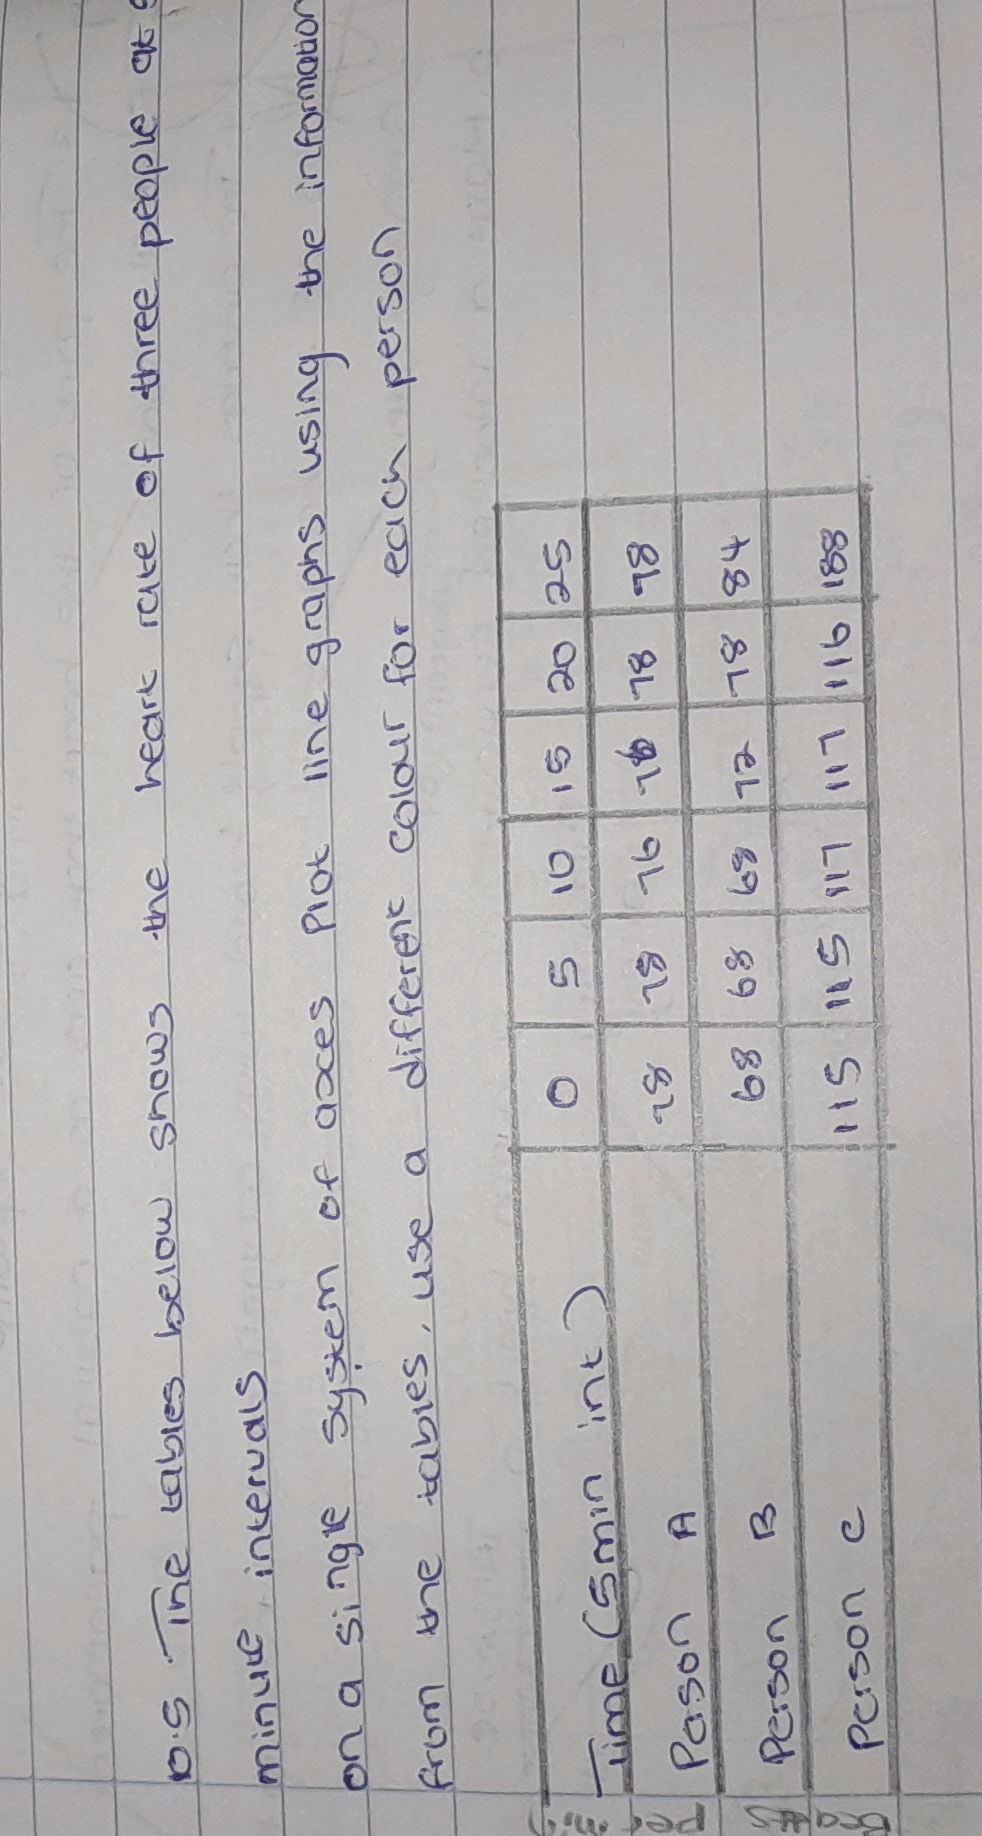 10.5 The tables below shows the heart rate of three people at 5
minute intervals
on a single system of axces Plot line graphs using the information
from the tables, use a different colour for each person
Time (5min int) 0 5 10 15 20 25
Peson A 78 78 76 76 78 78
Person B 68 68 68 72 78 84
Person C 115 115 117 117 116 188
Beats per min